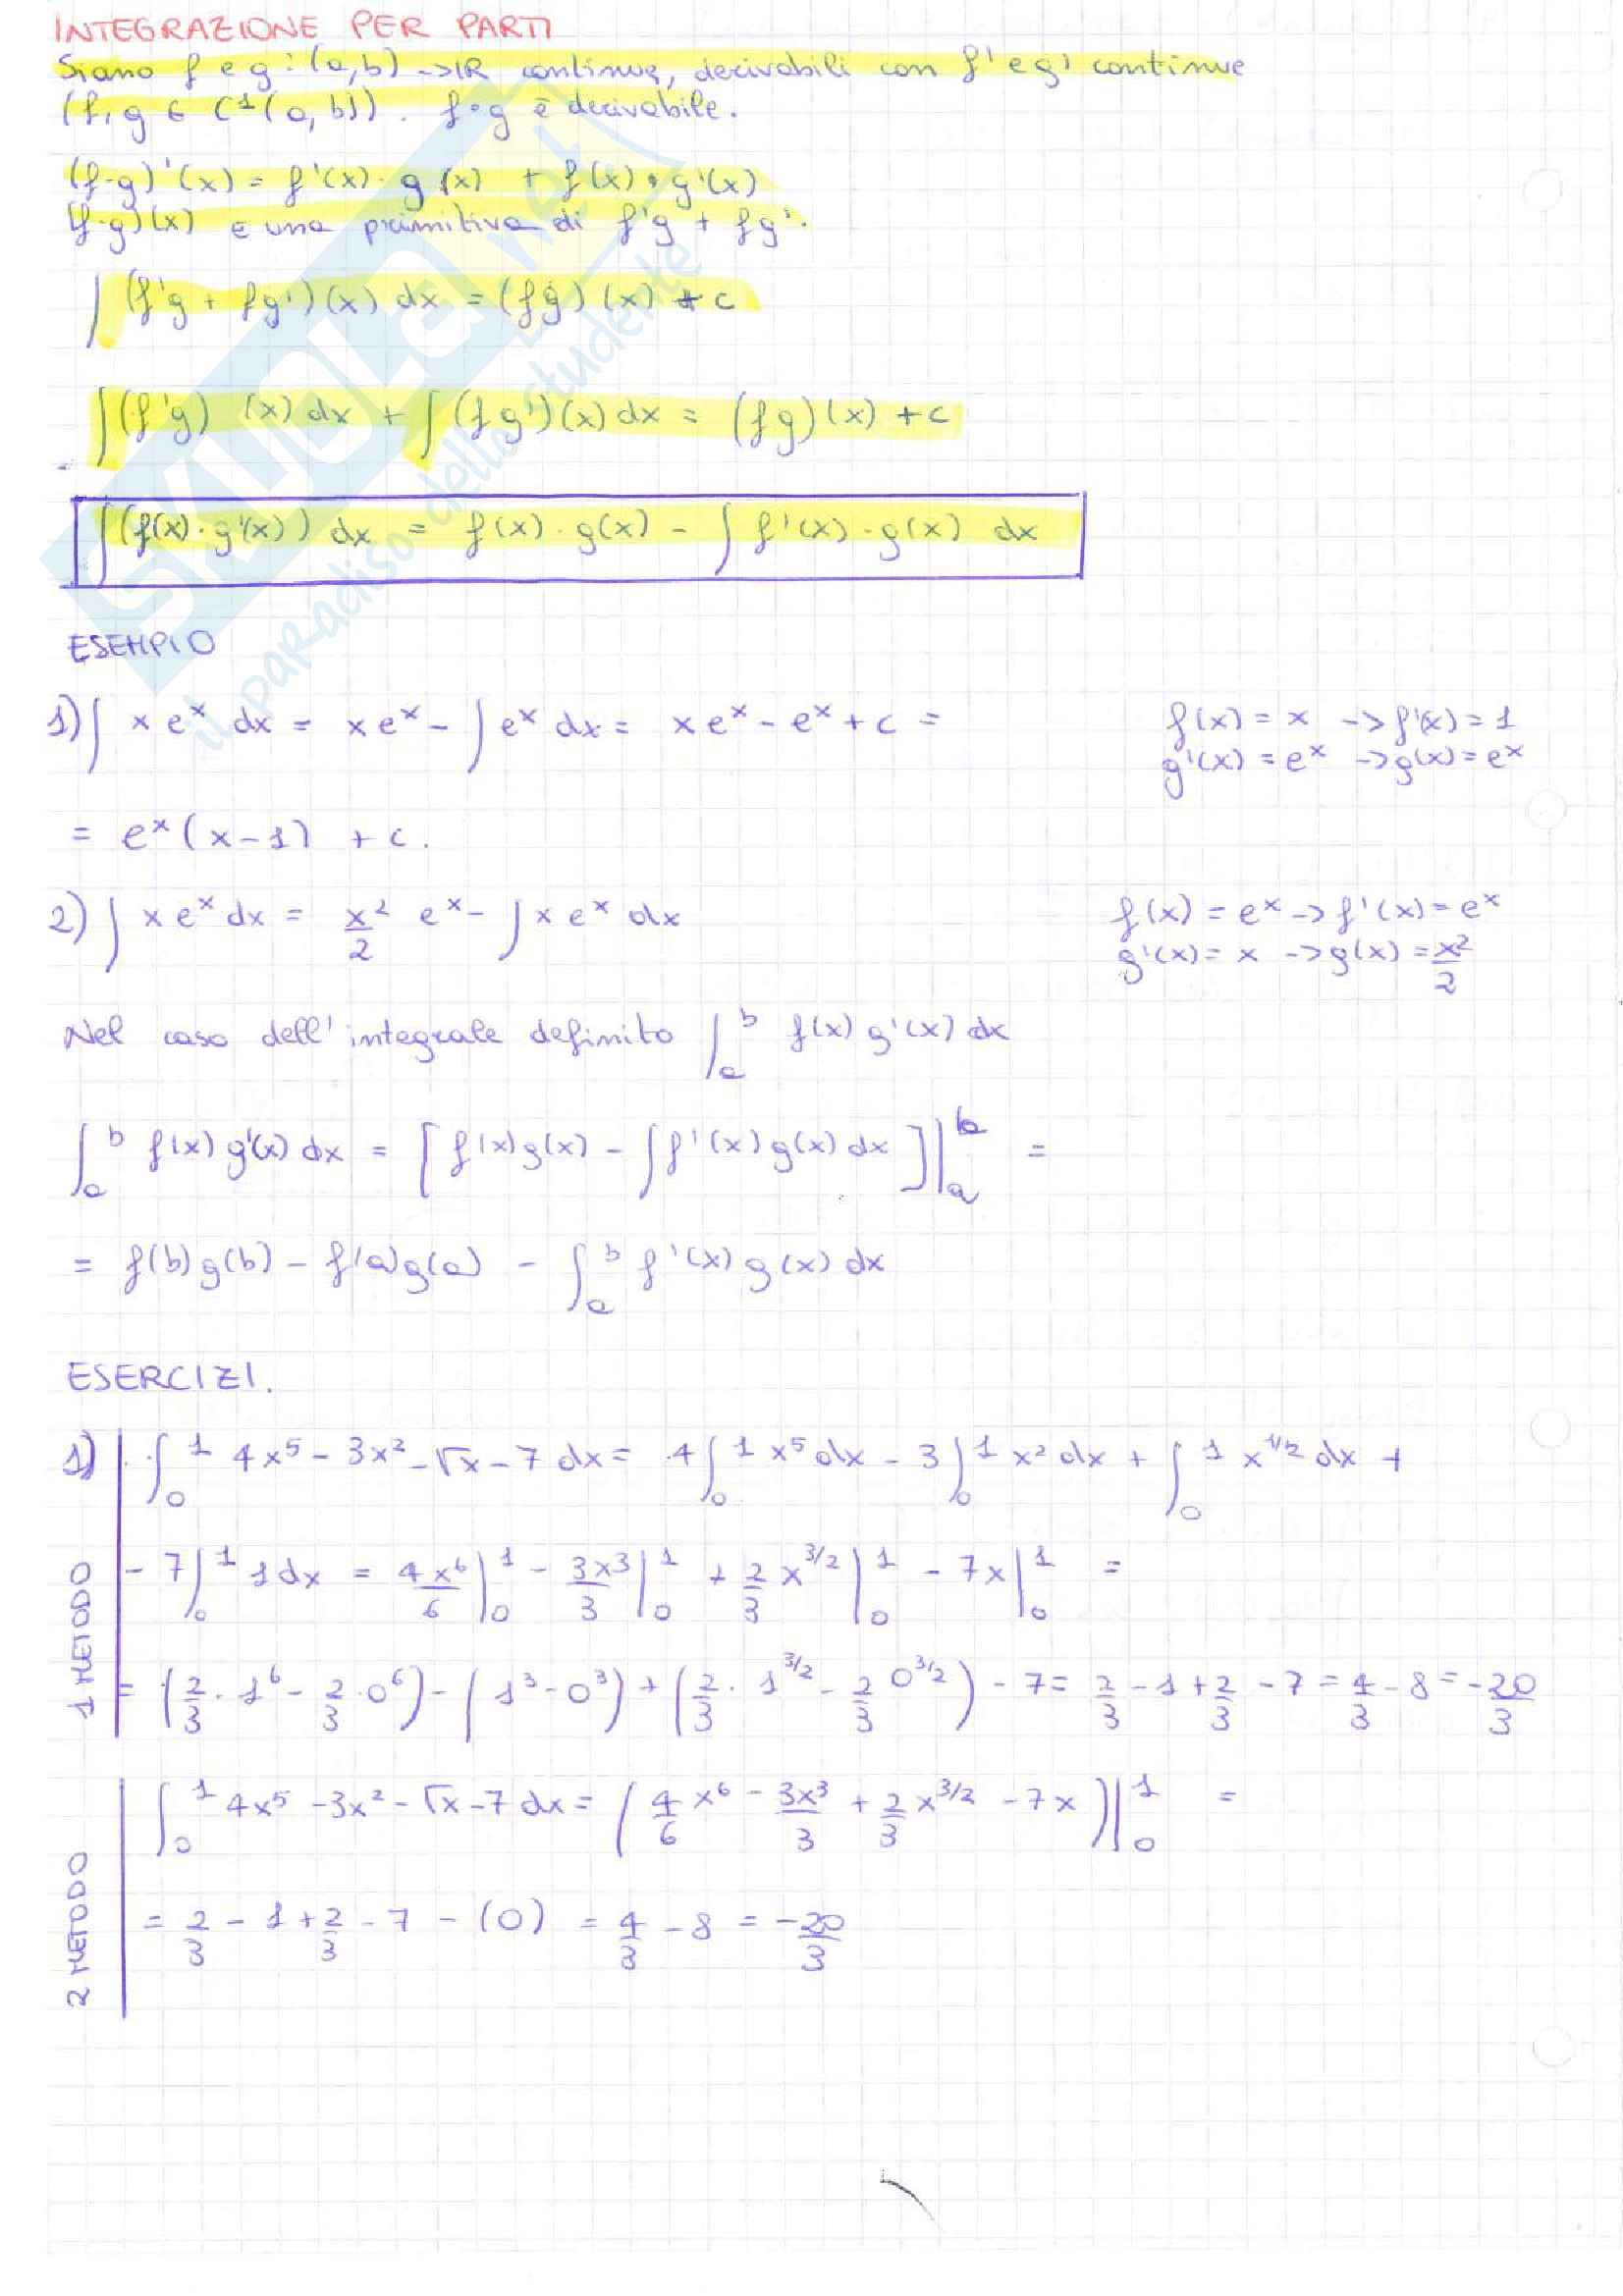 INTEGRAZIONE PER PARTI
Siano f e g : (a,b) -> IR continue, derivabili con f' e g' continue
(f, g ∈ C^1(a,b)). f·g è derivabile.
(f·g)'(x) = f'(x)·g(x) + f(x)·g'(x)
(f·g)(x) è una primitiva di f'g + fg'.
∫(f'g + fg')(x) dx = (fg)(x) + c
∫(f'g)(x) dx + ∫(fg')(x) dx = (fg)(x) + c
∫(f(x)·g'(x)) dx = f(x)·g(x) - ∫f'(x)·g(x) dx
ESEMPIO
1) ∫ x e^x dx = x e^x - ∫ e^x dx = x e^x - e^x + c =
f(x) = x -> f'(x) = 1
g'(x) = e^x -> g(x) = e^x
= e^x (x-1) + c.
2) ∫ x e^x dx = x^2/2 e^x - ∫ x e^x dx
f(x) = e^x -> f'(x) = e^x
g'(x) = x -> g(x) = x^2/2
Nel caso dell'integrale definito ∫_a^b f(x) g'(x) dx
∫_a^b f(x) g'(x) dx = [f(x)g(x) - ∫f'(x)g(x) dx]|_a^b =
= f(b)g(b) - f(a)g(a) - ∫_a^b f'(x) g(x) dx
ESERCIZI.
1) ∫_0^1 4x^5 - 3x^2 - √x - 7 dx = 4∫_0^1 x^5 dx - 3∫_0^1 x^2 dx + ∫_0^1 x^{1/2} dx +
1 METODO
- 7∫_0^1 1 dx = 4x^6/6|_0^1 - 3x^3/3|_0^1 + 2/3 x^{3/2}|_0^1 - 7x|_0^1 =
= (2/3·1^6 - 2/3·0^6) - (1^3 - 0^3) + (2/3·1^{3/2} - 2/3 0^{3/2}) - 7 = 2/3 - 1 + 2/3 - 7 = 4/3 - 8 = -20/3
2 METODO
∫_0^1 4x^5 - 3x^2 - √x - 7 dx = (4/6 x^6 - 3x^3/3 + 2/3 x^{3/2} - 7x)|_0^1 =
= 2/3 - 1 + 2/3 - 7 - (0) = 4/3 - 8 = -20/3
SKUOLA.net
il paradiso dello studente